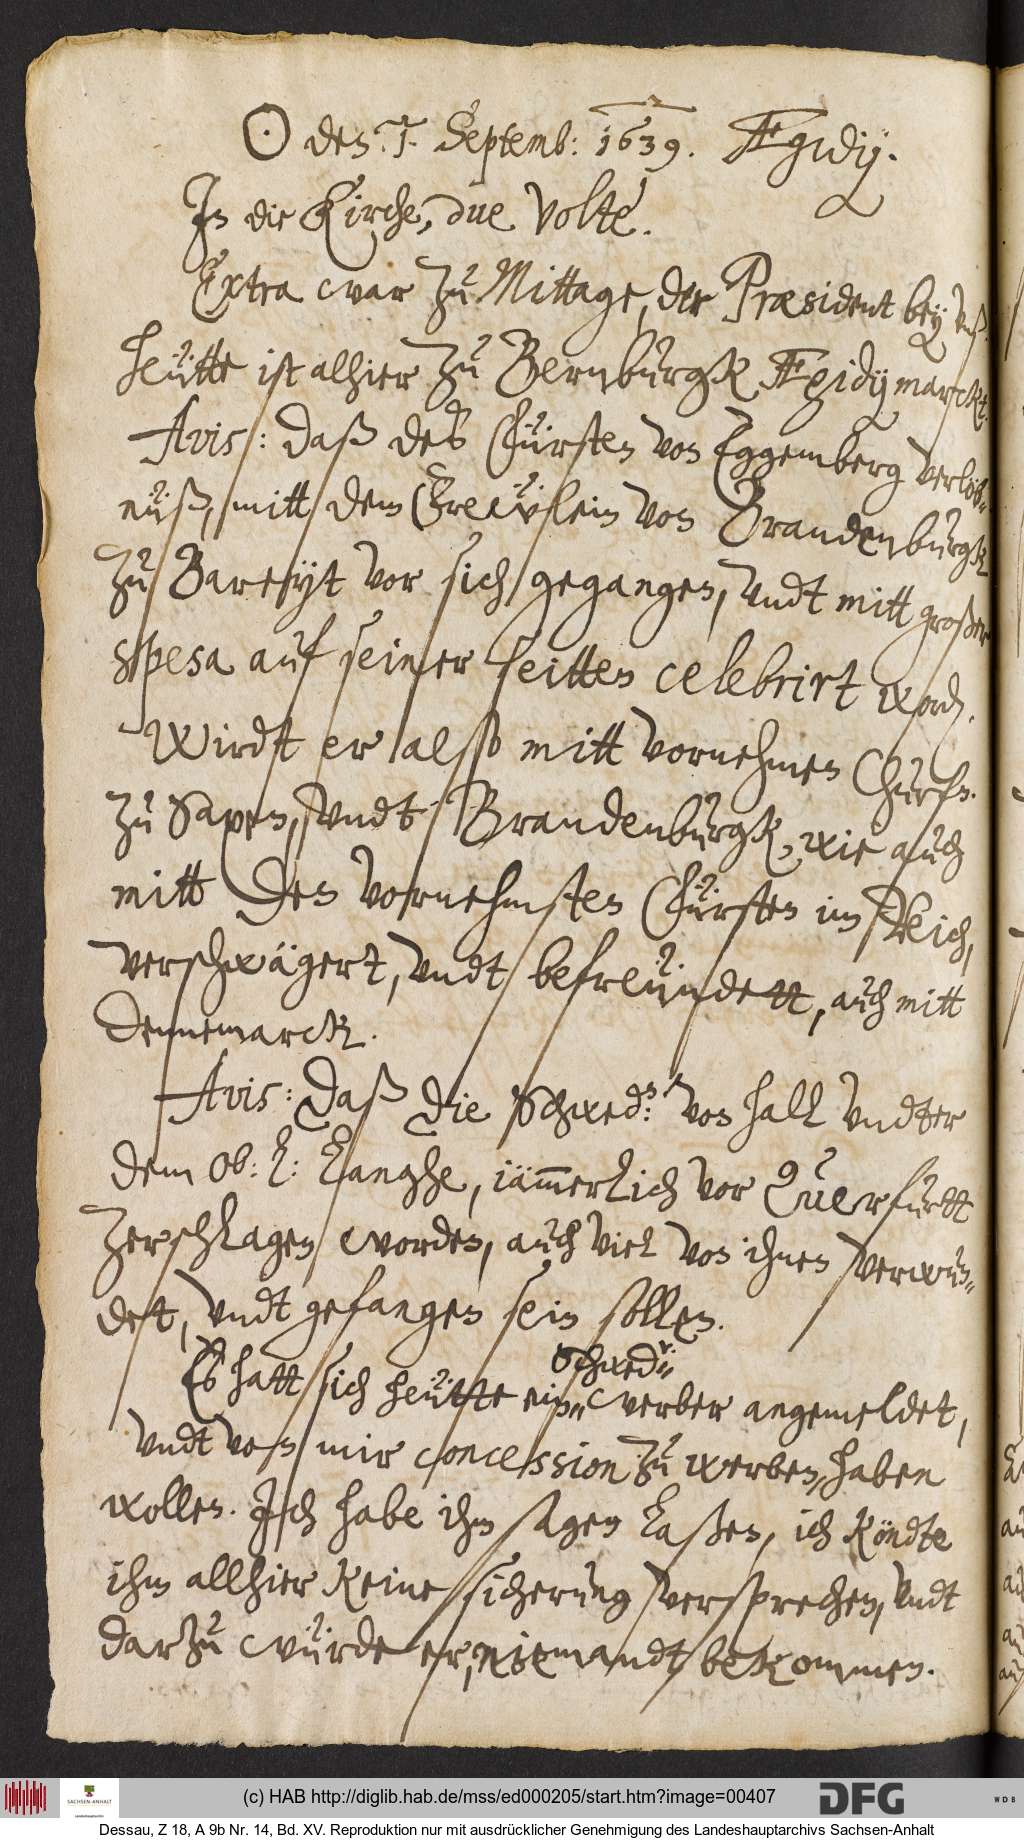 ☉ des .1. Septemb: 1639. Ægidij.
In die Kirche, due volte.
Extra war zu Mittage, der Præsident bey unß.
Heütte ist alhier zu Bernburgk Ægidij marckt.
Avis: daß des Fürsten von Eggemberg verlöb„
nüß, mitt dem Frewlein von Brandenburgk
zu Bareyt vor sich gegangen, undt mitt großer
spesa auf seiner seitten celebrirt word.
Wirdt er also mitt vornehmen Churfn.
zu Saxen, undt Brandenburgk, wie auch
mitt den vornehmsten Fürsten im Reich,
verschwägert, undt befreündett, auch mitt
Dennemarck.
Avis: Daß die Schwed: von Hall undter
dem Ob: L: Langhe, iäm̅erlich vor Querfurtt
zerschlagen worden, auch viel von ihnen verwun„
det, undt gefangen sein sollen.
Schwed:
Es hatt sich heütte ein„ werber angemeldet,
undt von mir concession zu werben, haben
wollen. Ich habe ihm sagen laßen, ich köndte
ihm allhier keine sicherung versprechen, undt
darzu würde er, niemandt bekommen.
SACHSEN-ANHALT
(c) HAB http://diglib.hab.de/mss/ed000205/start.htm?image=00407
DFG
WDB
Dessau, Z 18, A 9b Nr. 14, Bd. XV. Reproduktion nur mit ausdrücklicher Genehmigung des Landeshauptarchivs Sachsen-Anhalt